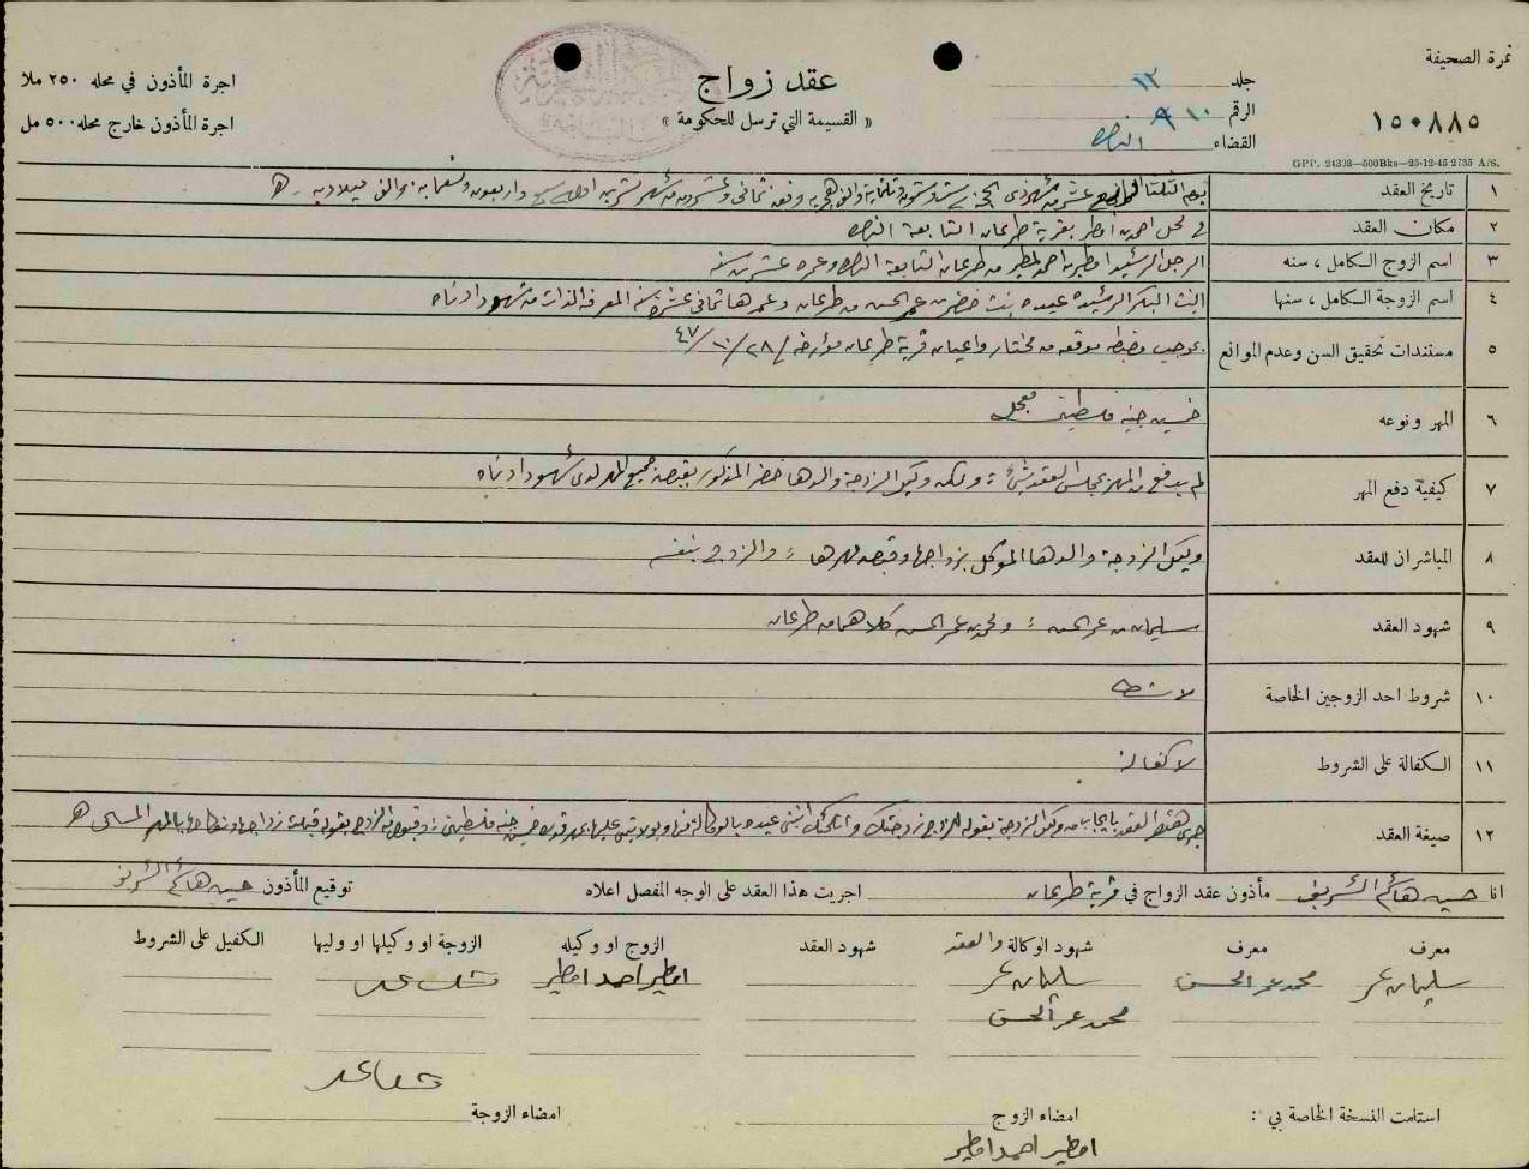 نمرة الصحيفة
١٥٠٨٨٥
GPP. 24393—500Bks—25-12-45 2735 A/S.
جلد ١٢
الرقم ١٠
القضاء الناصره
عقد زواج
« القسيمة التي ترسل للحكومة »
اجرة المأذون في محله ٢٥٠ ملا
اجرة المأذون خارج محله ٥٠٠ مل
١ تاريخ العقد يوم الثلثا الرابع عشر من شهر ذي الحجة سنة ست وستون وثلثماية والف هجريه وفق ثماني وعشرون من شهر تشرين اول سنة سبع واربعون وتسعمايه والف ميلاديه ـ ه
٢ مكان العقد في محل احمد امطير بقرية طرعان التابعة الناصره
٣ اسم الزوج الكامل ، سنه الرجل الرشيد امطير بن احمد امطير من طرعان التابعة الناصره وعمره عشرين سنه
٤ اسم الزوجة الكامل ، سنها البنت البكر الرشيده عيده بنت خضر بن عمر الحسن من طرعان وعمرها ثماني عشرة سنه المعرفة الذات من شهود ادناه
٥ مستندات تحقيق السن وعدم الموانع بموجب مضبطه موقعه من مختار واعيان قرية طرعان مؤرخه ٢٨/١٠/٤٧
٦ المهر ونوعه خمسين جنيه فلسطيني معجل
٧ كيفية دفع المهر لم يدفع من المهر بمجلس العقد شيء : ولكن وكيل الزوجة والدها خضر المذكور بقبضه جميع المهر لدى شهود ادناه
٨ المباشران للعقد وكيل الزوجة والدها الموكل بزواجها وقبض مهرها : والزوج بنفسه
٩ شهود العقد سليمان بن عمر الحسن : ومحمد بن عمر الحسن كلاهما من طرعان
١٠ شروط احد الزوجين الخاصة لا شرط
١١ الكفالة على الشروط لا كفالة
١٢ صيغة العقد جرى هذا العقد بايجاب من وكيل الزوجة بقوله للزوج زوجتك وانكحتك ابنتي عيده بالوكالة عنها وبولايتي عليها بمهر قدره خمسين جنيه فلسطيني : وقبول من الزوج بقوله قبلت زواجها ونكاحها بالمهر المسمى ه
انا حسين هاشم الشريف مأذون عقد الزواج في قرية طرعان اجريت هذا العقد على الوجه المفصل اعلاه توقيع المأذون حسين هاشم الشريف
معرف معرف شهود الوكالة والعقد شهود العقد الزوج او وكيله الزوجة او وكيلها او وليها الكفيل على الشروط
سليمان عمر محمد عمر الحسن سليمان عمر امطير احمد امطير
محمد عمر الحسن
استلمت النسخة الخاصة بي : امضاء الزوج امضاء الزوجة
امطير احمد امطير